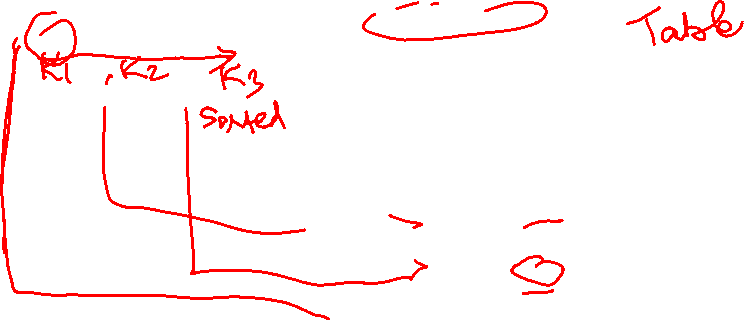 Table
K1, K2 K3
Sorted